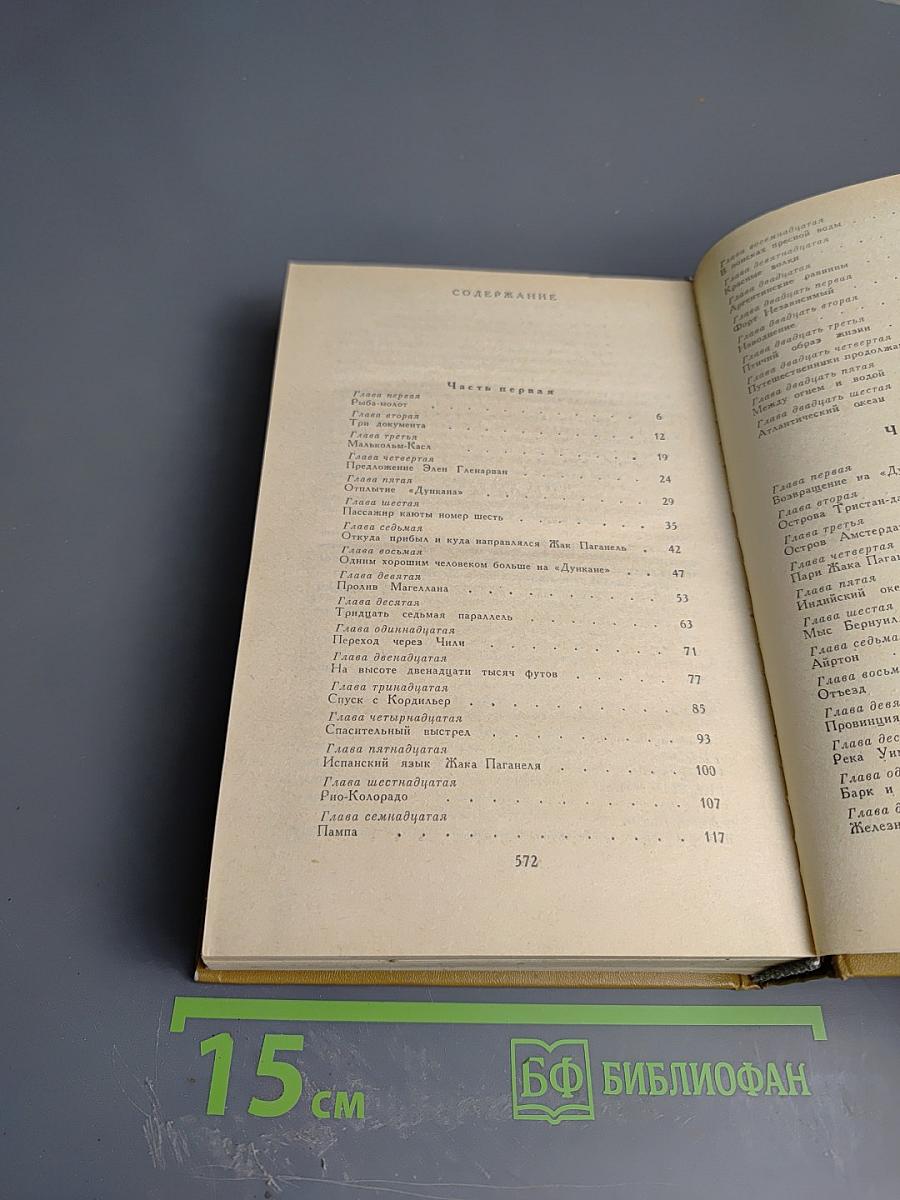 СОДЕРЖАНИЕ
Часть первая
Глава первая
Рыба-молот . . . . . . . . . . 6
Глава вторая
Три документа . . . . . . . . . . 12
Глава третья
Малькольм-Касл . . . . . . . . . . 19
Глава четвертая
Предложение Элен Гленарван . . . . . . . 24
Глава пятая
Отплытие «Дункана» . . . . . . . . . 29
Глава шестая
Пассажир каюты номер шесть . . . . . . . 35
Глава седьмая
Откуда прибыл и куда направлялся Жак Паганель . 42
Глава восьмая
Одним хорошим человеком больше на «Дункане» . . 47
Глава девятая
Пролив Магеллана . . . . . . . . . 53
Глава десятая
Тридцать седьмая параллель . . . . . . . 63
Глава одиннадцатая
Переход через Чили . . . . . . . . 71
Глава двенадцатая
На высоте двенадцати тысяч футов . . . . . 77
Глава тринадцатая
Спуск с Кордильер . . . . . . . . 85
Глава четырнадцатая
Спасительный выстрел . . . . . . . . 93
Глава пятнадцатая
Испанский язык Жака Паганеля . . . . . . 100
Глава шестнадцатая
Рио-Колорадо . . . . . . . . . . 107
Глава семнадцатая
Пампа . . . . . . . . . . . 117
572
Глава восемнадцатая
В поисках пресной воды . . .
Глава девятнадцатая
Красные волки . . .
Глава двадцатая
Аргентинские равнины . .
Глава двадцать первая
Форт Независимый . .
Глава двадцать вторая
Наводнение . . .
Глава двадцать третья
Птичий образ жизни . .
Глава двадцать четвертая
Путешественники продолжа
Глава двадцать пятая
Между огнем и водой
Глава двадцать шестая
Атлантический океан
Ч
Глава первая
Возвращение на «Ду
Глава вторая
Острова Тристан-да
Глава третья
Остров Амстердам
Глава четвертая
Пари Жака Паган
Глава пятая
Индийский оке
Глава шестая
Мыс Бернуил
Глава седьма
Айртон .
Глава восьм
Отъезд
Глава девя
Провинция
Глава дес
Река Уи
Глава од
Барк и
Глава д
Железн
15 см
БФ БИБЛИОФАН